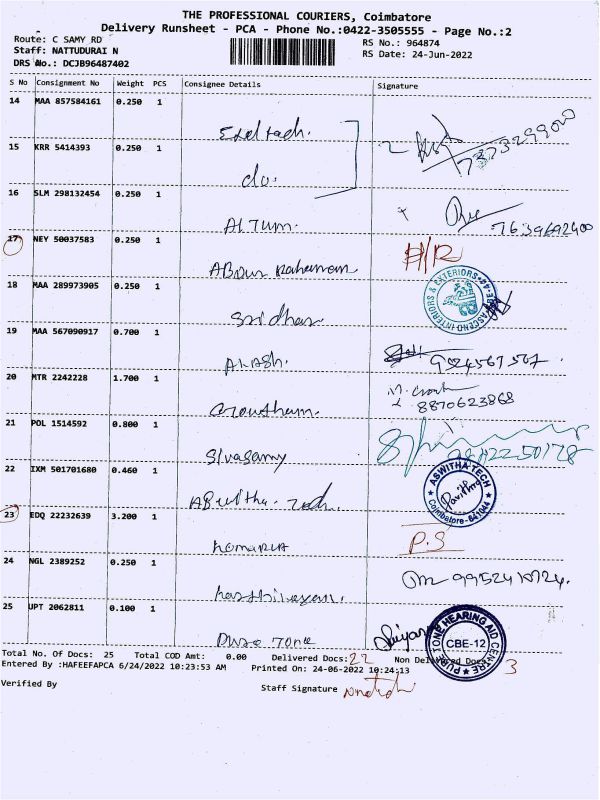 THE PROFESSIONAL COURIERS, Coimbatore
Delivery Runsheet - PCA - Phone No.:0422-3505555 - Page No.:2
Route: C SAMY RD
RS No.: 964874
Staff: NATTUDURAI N
RS Date: 24-Jun-2022
DRS No.: DCJB96487402
S No Consignment No Weight PCS Consignee Details Signature
14 MAA 857584161 0.250 1
15 KRR 5414393 0.250 1
do.
16 SLM 298132454 0.250 1
ALTUM. 7639692400
17 NEY 50037583 0.250 1
Abdul Rahuman
18 MAA 289973905 0.250 1
Sridhar ASCEND INTERIORS & EXTERIORS
19 MAA 567090917 0.700 1
AKASH. 9524567507.
20 MTR 2242228 1.700 1
Gowtham. 8870623868
21 POL 1514592 0.800 1
Sivasamy
22 IXM 501701680 0.460 1
ASWITHA TECH Coimbatore-641044 Pavithra
23 EDQ 22232639 3.200 1
P.S
24 NGL 2389252 0.250 1
25 UPT 2062811 0.100 1
Pure Tone PURE TONE HEARING AID CENTRE CBE-12
Total No. Of Docs: 25 Total COD Amt: 0.00 Delivered Docs: 22 Non Delivered Docs: 3
Entered By :HAFEEFAPCA 6/24/2022 10:23:53 AM Printed On: 24-06-2022 10:24:13
Verified By Staff Signature